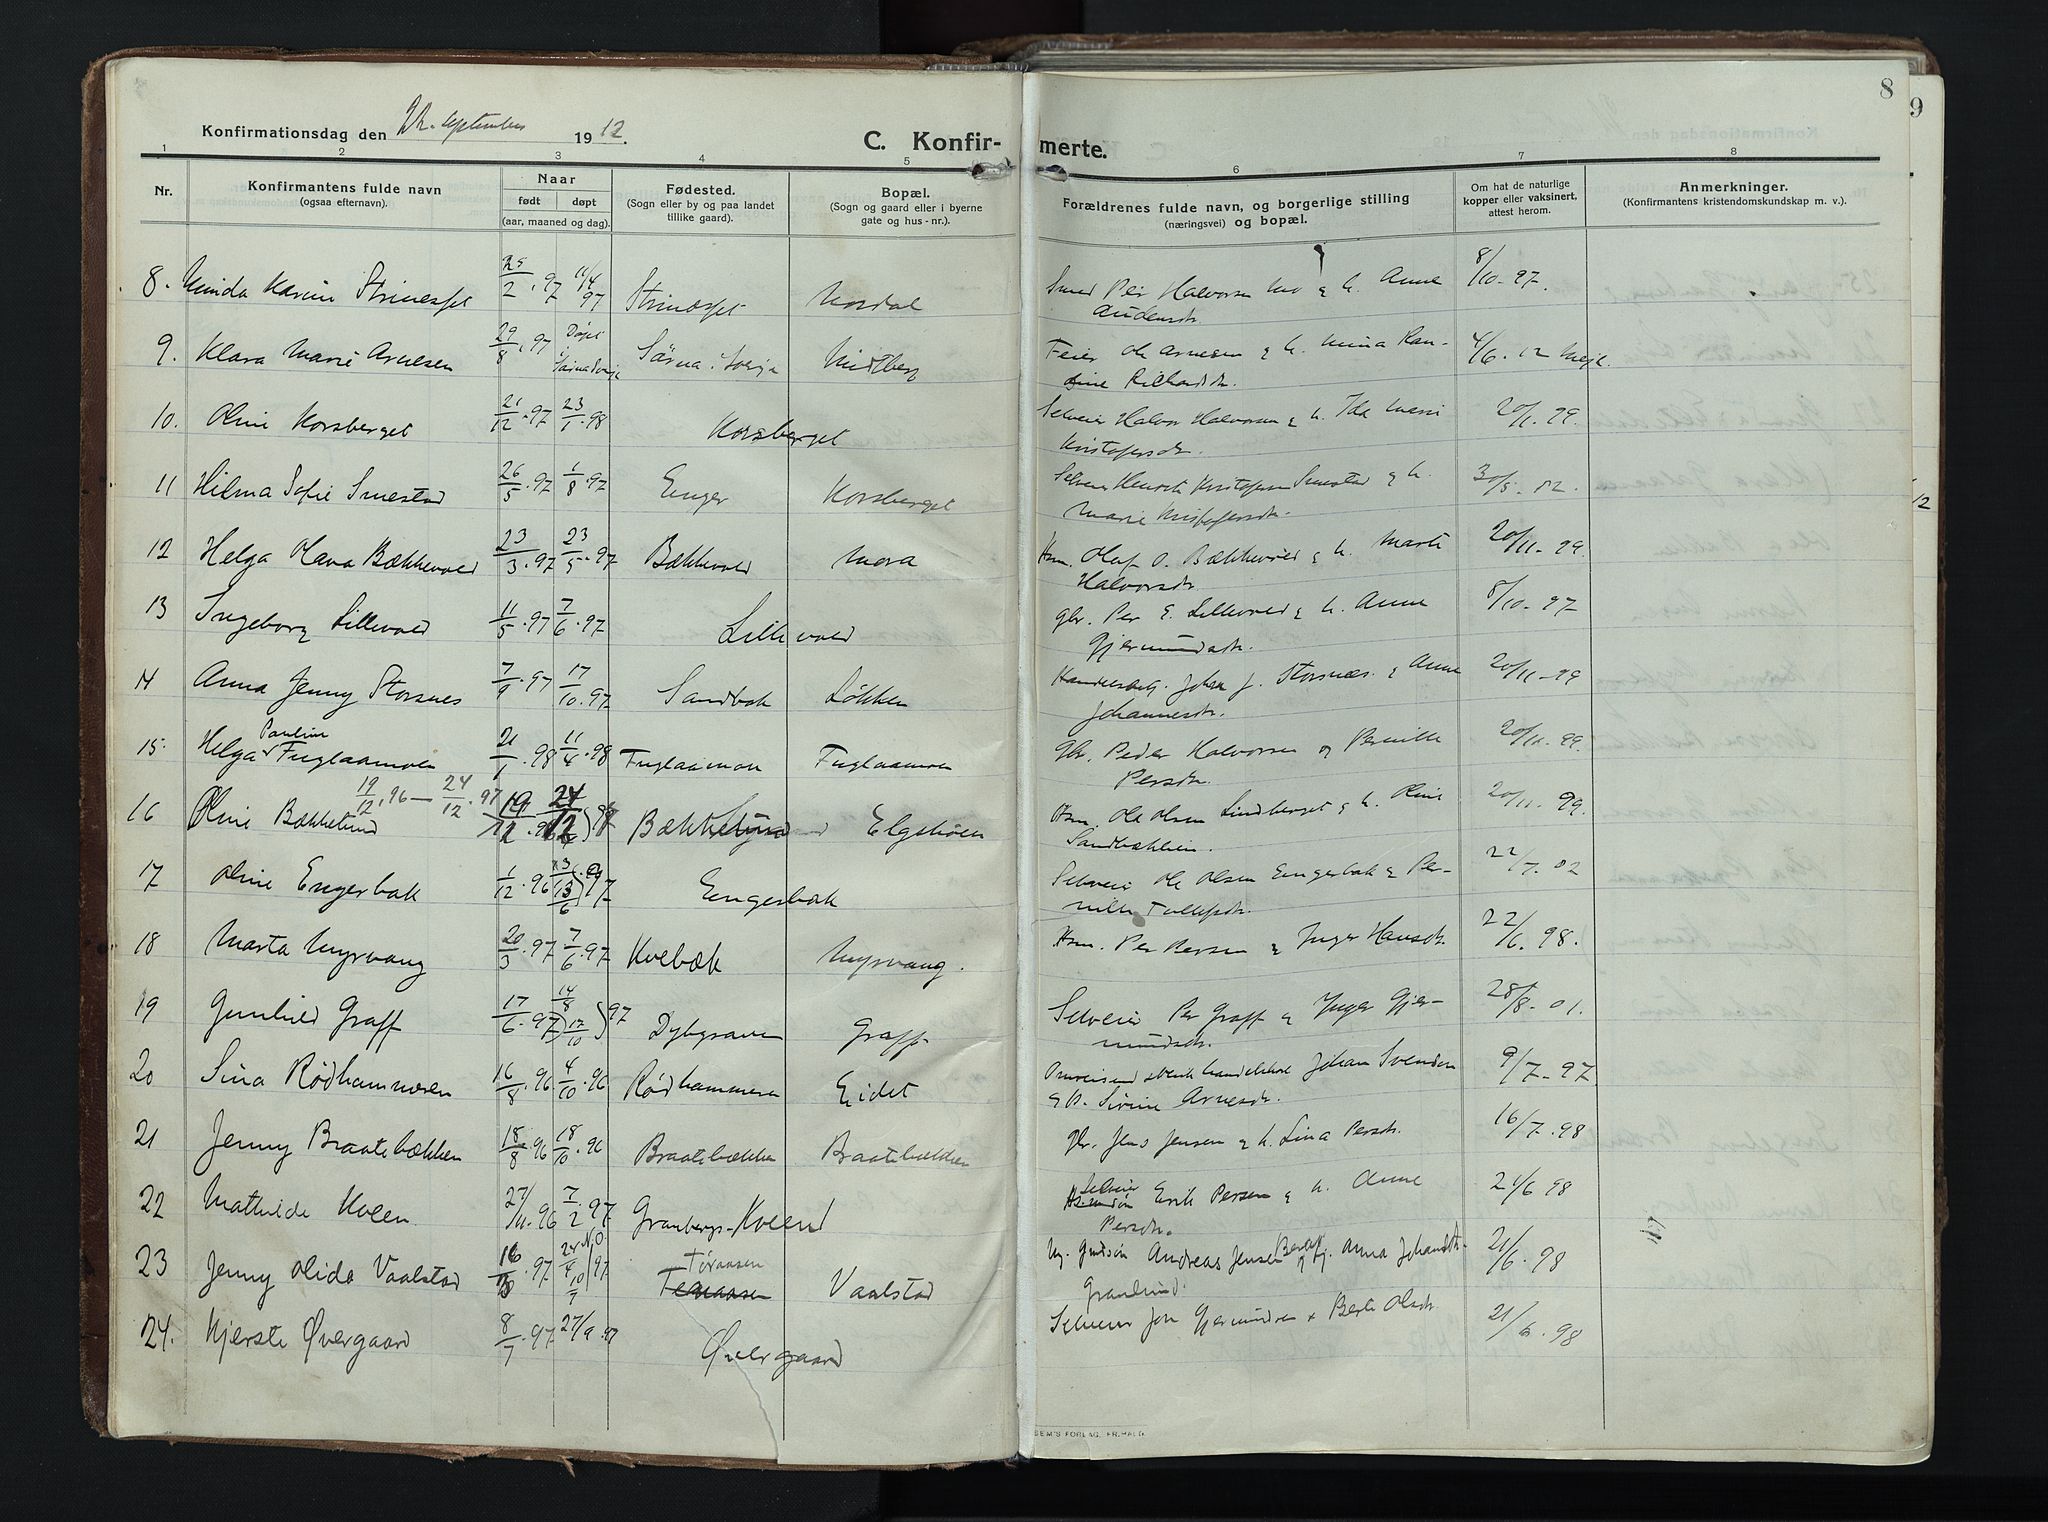 8
9
Konfirmationsdag den 22. september 1912.
C. Konfirmerte.
1 2 3 4 5 6 7 8
Nr.
Konfirmantens fulde navn
(ogsaa efternavn).
Naar
født døpt
(aar, maaned og dag).
Fødested.
(Sogn eller by og paa landet
tillike gaard).
Bopæl.
(Sogn og gaard eller i byerne
gate og hus - nr.).
Forældrenes fulde navn, og borgerlige stilling
(næringsvei) og bopæl.
Om hat de naturlige
kopper eller vaksinert,
attest herom.
Anmerkninger.
(Konfirmantens kristendomskundskap m. v.).
8. Minda Karine Strinesset 25/2.97 11/4 97 Strinesset Mosdal Smed Per Halvorsen Mo & h. Anne 8/10-97.
Audensdr.
9. Klara Marie Arnesen 29/8.97 Døpt i Særna Sverge Særna i Sverje Midtberg Feier Ole Arnesen & h. Mina Kan- 4/6.12
dine Rikardsdr.
10. Oline Korsberget 21/12.97 23/1.98 Korsberget Selveier Halvor Halvorsen & h. Ida Marie 20/11.99.
Kristofersdr.
11 Hilma Sofie Smestad 26/5.97 1/8.97 Enger Korsberget Selveier Henrik Kristofersen Smestad & h. 30/5.02.
Marie Kristofersdr.
12 Helga Olava Bækkevold 23/3.97 23/5.97 Bækkevold Mora Hsm. Olaf O. Bækkevold & h. Marte 20/11-99.
Halvorsdr.
13 Ingeborg Lillevold 11/5.97 7/6.97 Lillevold Gbr. Per E. Lillevold & h. Anne 8/10-97
Gjermundsdr.
14 Anna Jenny Storsnes 7/9.97 17/10.97 Sandbak Løkken Handelsbetj. Johan J. Storsnæs & Anne 20/11-99
Johannesdr.
15. Helga Pauline Fuglaamoen 21/1.98 11/4.98 Fuglaamoen Fuglaamoen Gbr. Peder Halvorsen og Pernille 20/11.99.
Persdr.
19/12.96 — 24/12.97
16 Oline Bækkelund 19/12.96 24/12 Bækkelund Elgshøen Hsm. Ole Olsen Lindberget & h. Oline 20/11.99
Sandbækken.
17 Oline Engerbak 1/12.96 13/6 97 Engerbak Selveier Ole Olsen Engerbak & Per- 22/7.02
nille Tollefsdr.
18 Marta Myrvang 20/3.97 7/6.97 Kvebæk Myrvang. Hsm. Per Persen & Inger Hansdr. 22/6.98.
19 Gunhild Graff 17/6.97 14/8 17/10 97 Dybgraven Graff Selveier Per Graff & Inger Gjer- 28/8-01.
mundsdr.
20 Sina Rødhammeren 16/8.96 4/10.96 Rødhammeren Eidet Johan Svendsen 9/7-97
& h. Sirine Arnesdr.
21 Jenny Braatebækken 18/8.96 18/10.96 Braatebækken Braatebækken Gbr. Jens Jensen & h. Lina Persdr. 16/7.98
22 Mathilde Kveen 27/11.96 7/2.97 Granbergs-Kveen Selveier Erik Persen & h. Anne 21/6 98
Persdr.
23 Jenny Olida Vaalstad 16/3.97 24/4 10/7 97 Tøraasen Vaalstad Andreas Jensen Anna Johansdtr. 21/6.98
Granlund.
24. Kjerste Øvergaard 8/7.97 27/9.97 Øvergaard Selveier Jon Gjermundsen & Berte Olsdr. 21/6.98
SEM'S FORLAG, FR.HALD.